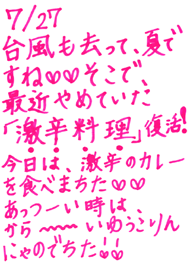 7/27
台風も去って、夏で
すね♡♡そこで、
最近やめていた
「激辛料理」復活!
今日は、激辛のカレー
を食べまちた♡♡
あっつーい時は、
から〜〜〜いゆうこりん
にゃのでちた!!